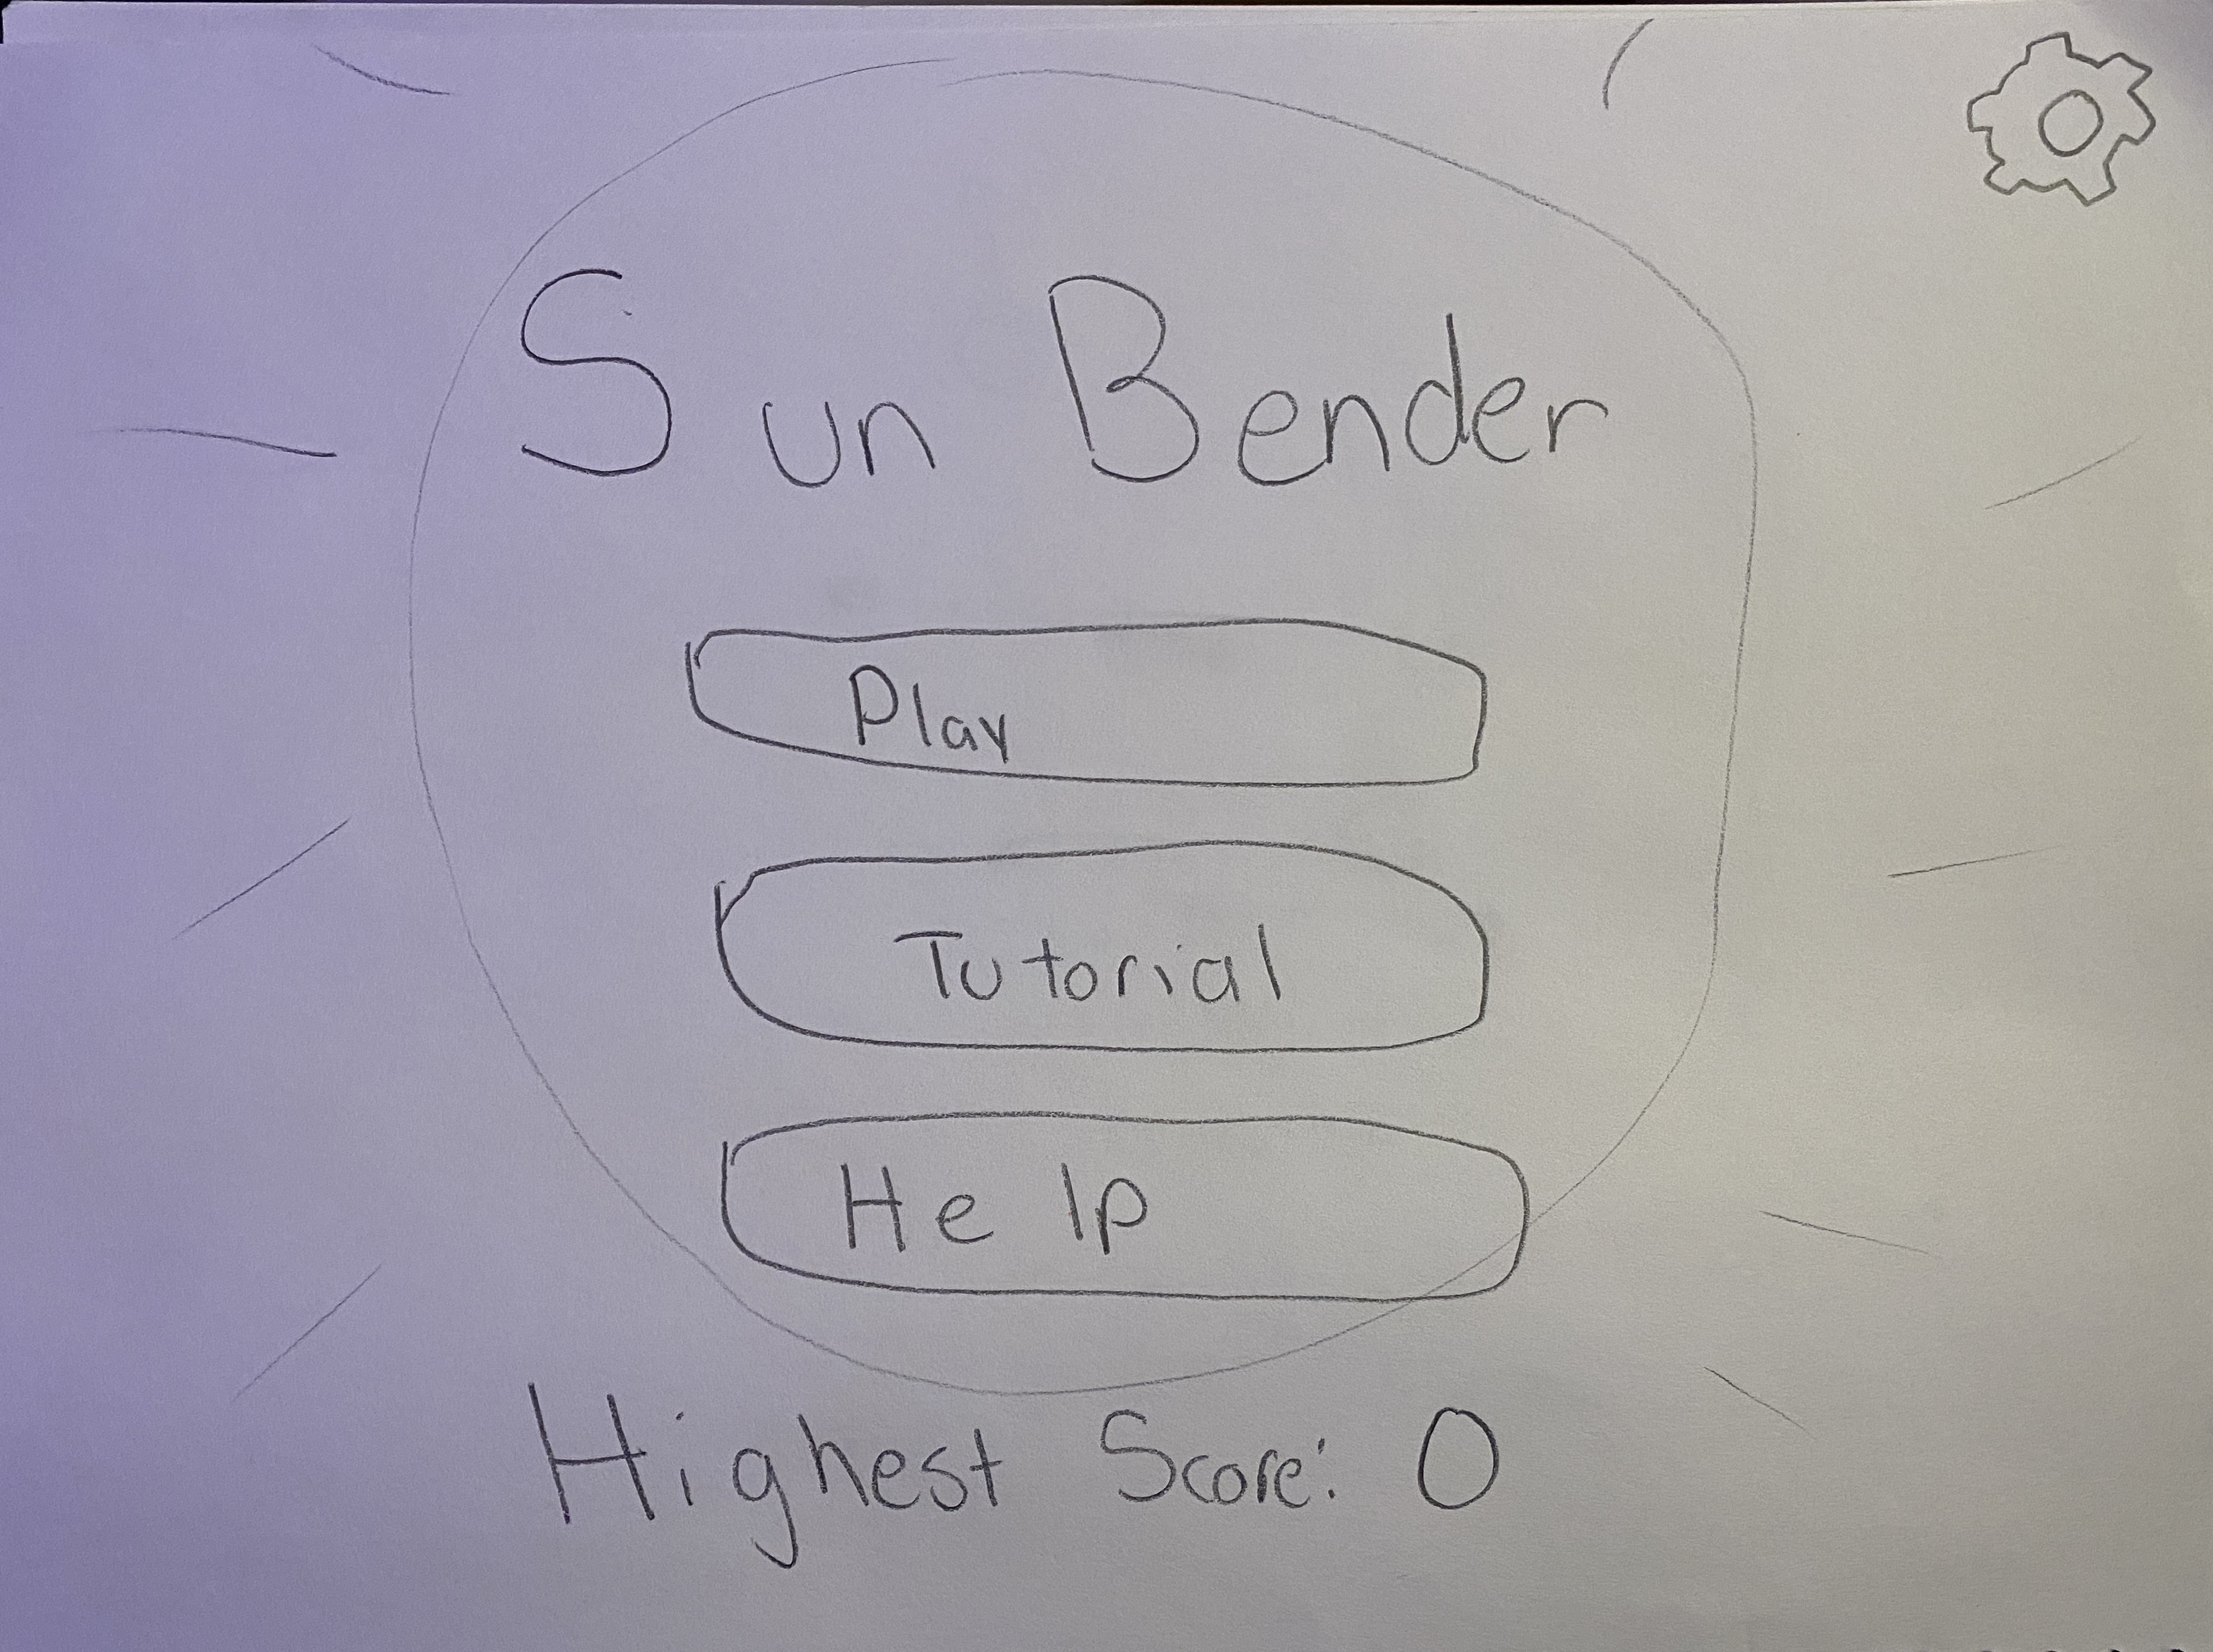 Sun Bender
Play
Tutorial
Help
Highest Score: 0